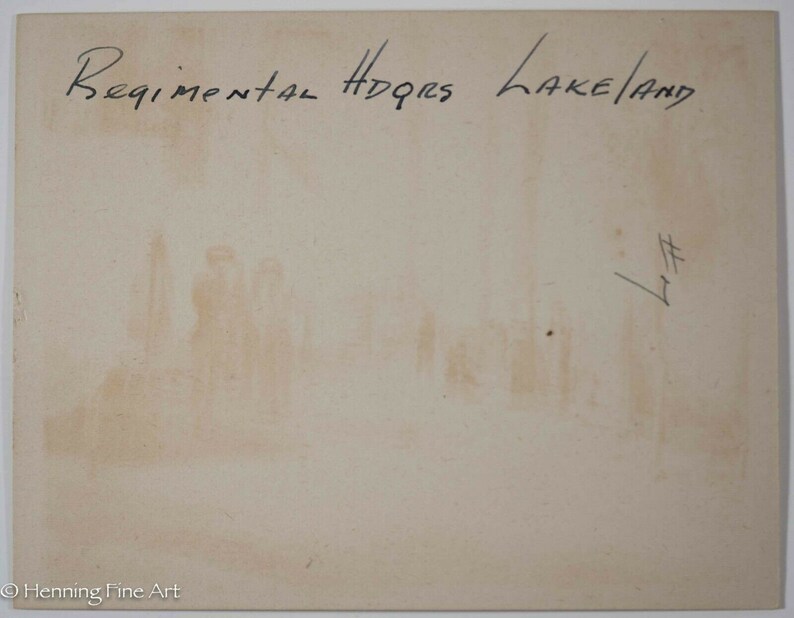 Regimental Hdqrs Lakeland
#7
© Henning Fine Art